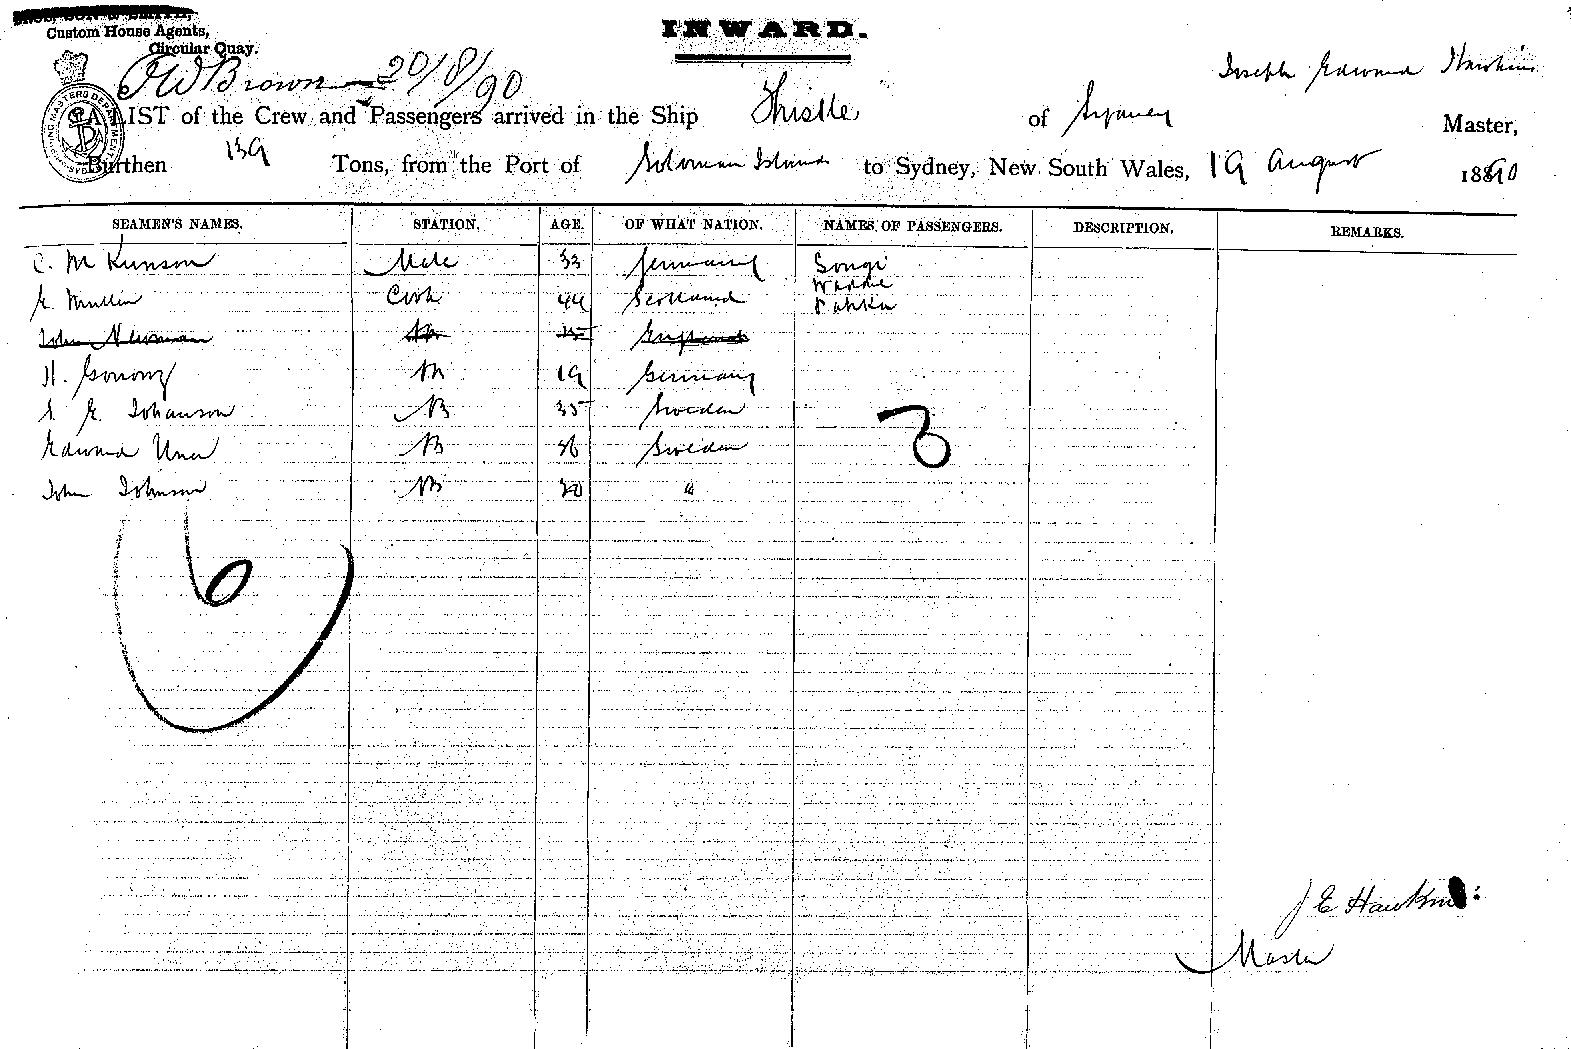 INWARD.
Custom House Agents,
Circular Quay.
J W Brown 20/8/90
Joseph Edward Hawkins
A LIST of the Crew and Passengers arrived in the Ship Thistle of Sydney Master,
Burthen 139 Tons, from the Port of Soloman Islands to Sydney, New South Wales, 19 August 1890
SEAMEN'S NAMES. STATION. AGE. OF WHAT NATION. NAMES OF PASSENGERS. DESCRIPTION. REMARKS.
C. M Mate 33 Germany Songi
Cook 44 Scotland
John Newman AB 25 England
H. AB 19 Germany
E. Johanson AB 35 Sweden
3
Edward AB 36 Sweden
John Johnson AB 30 "
6
J E Hawkins
Master